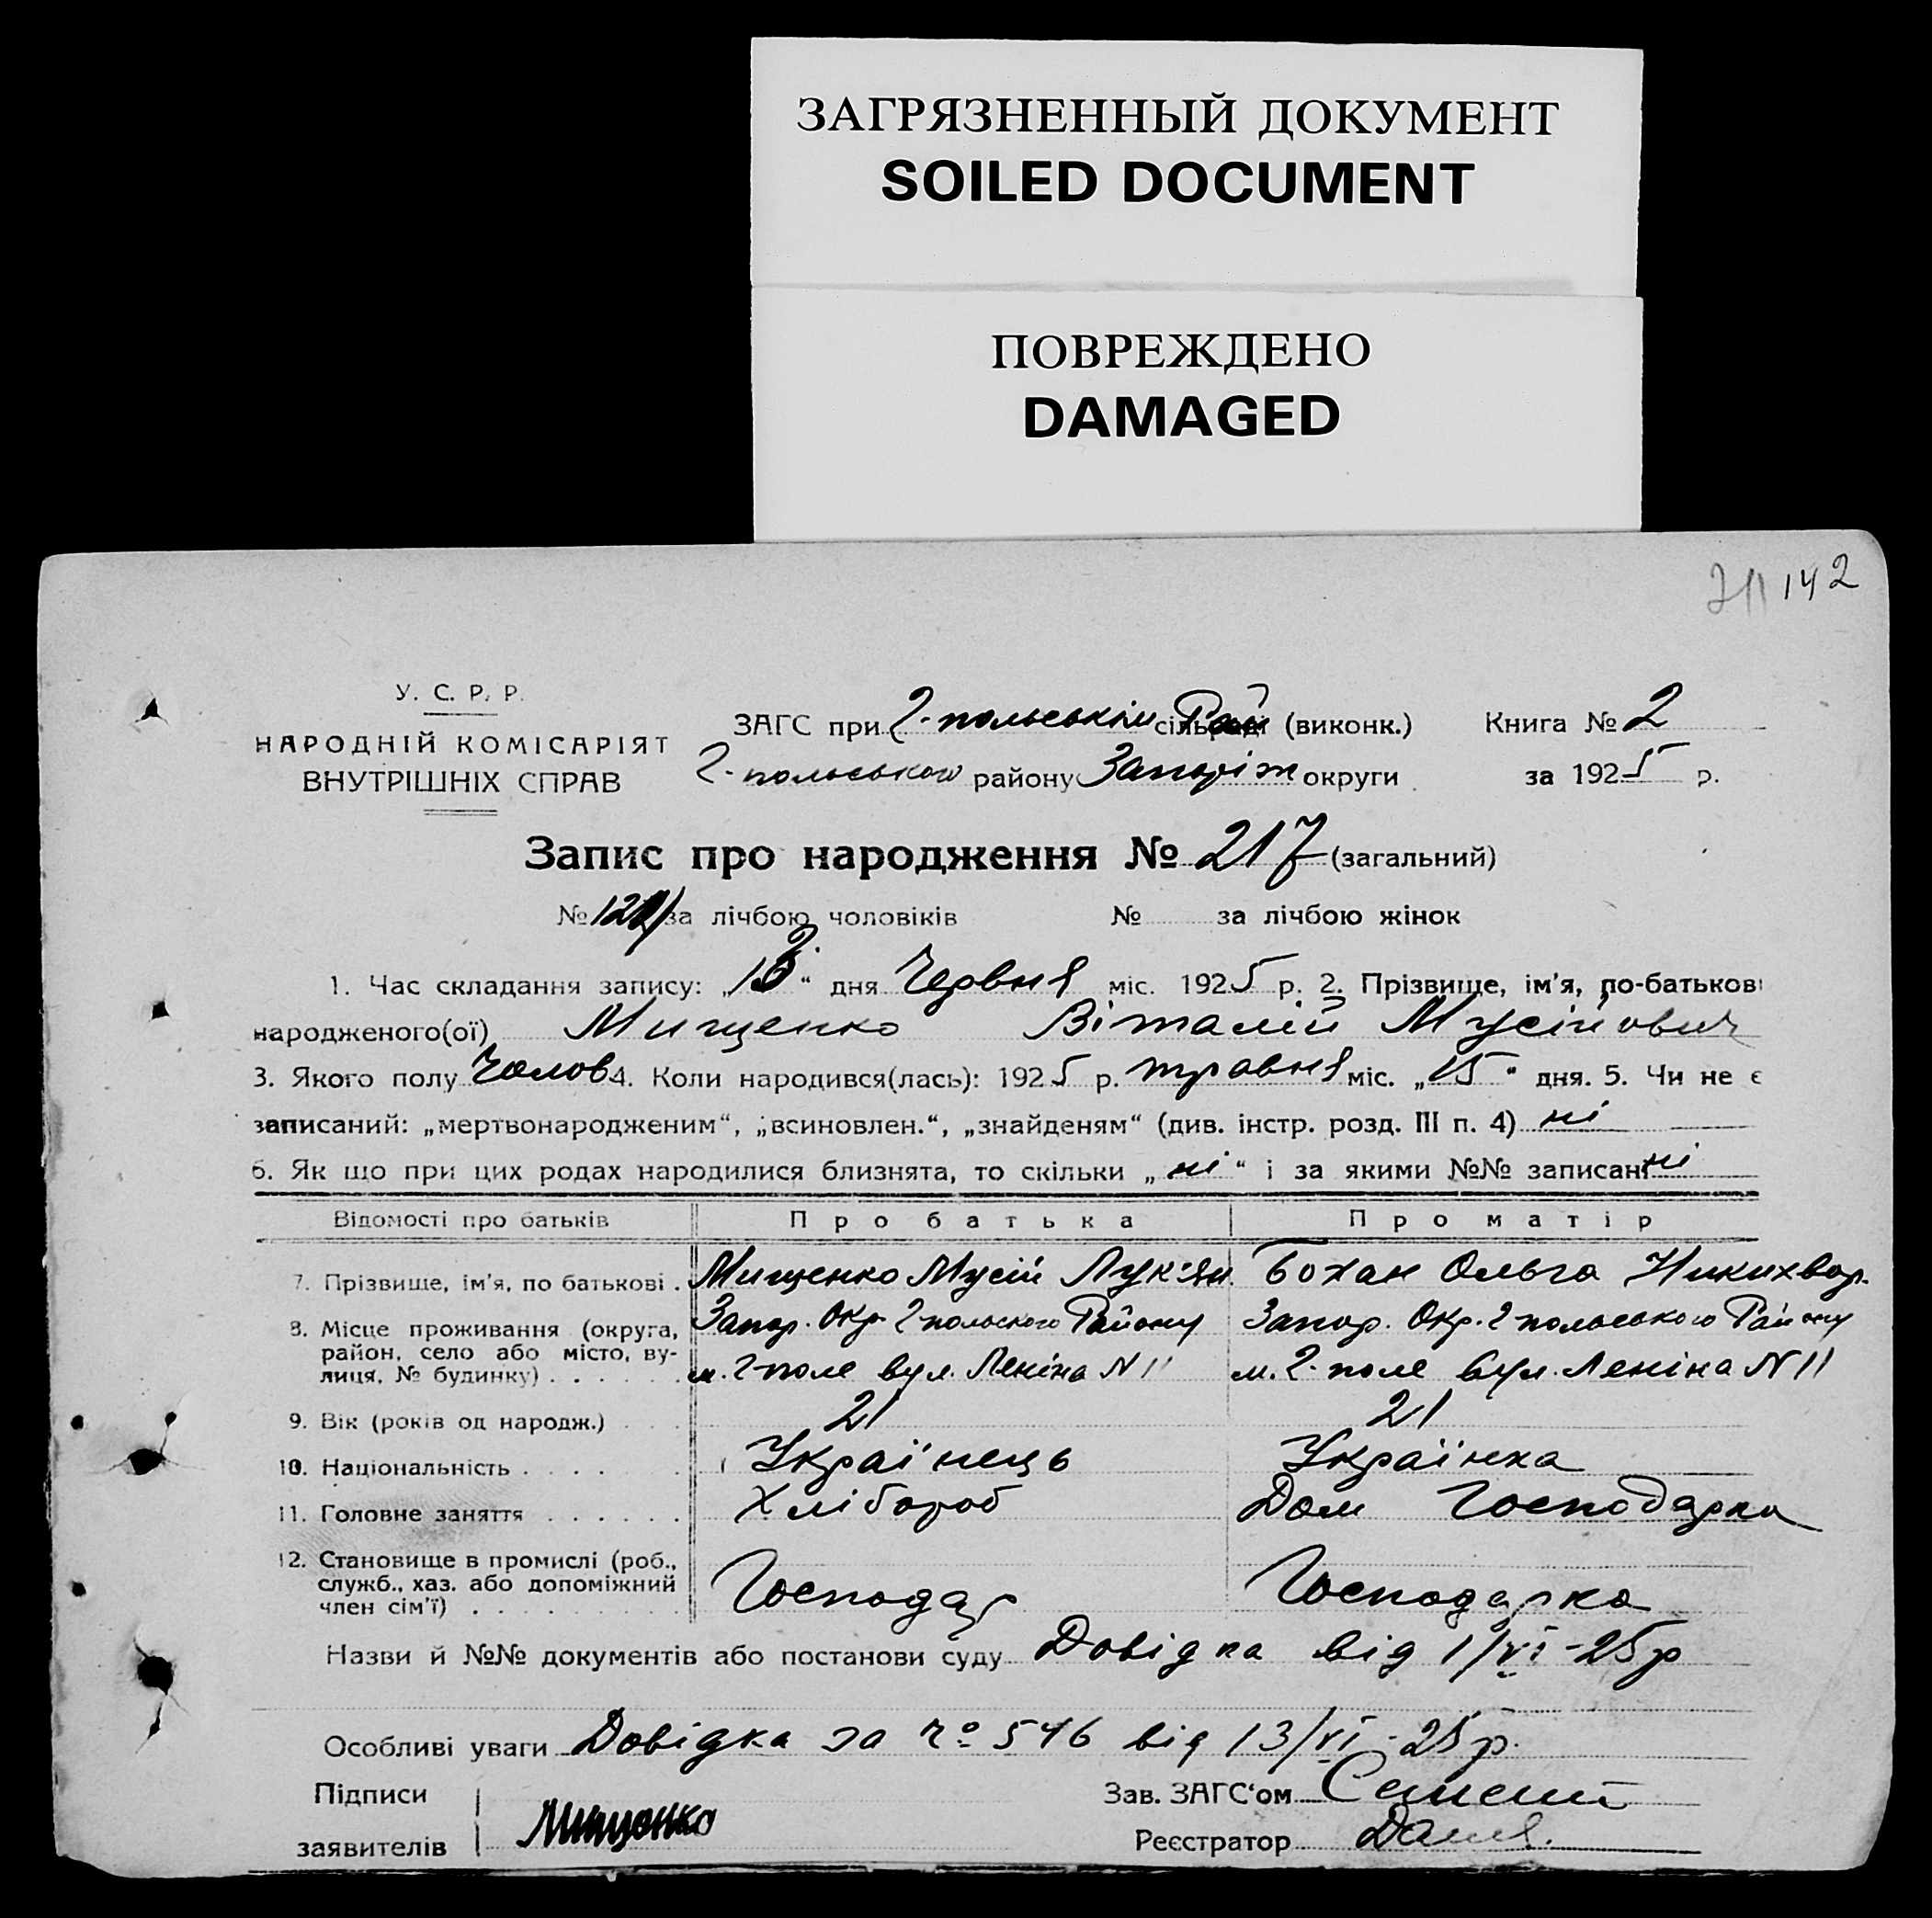 ЗАГРЯЗНЕННЫЙ ДОКУМЕНТ
SOILED DOCUMENT
ПОВРЕЖДЕНО
DAMAGED
142
У. С. Р. Р.
НАРОДНІЙ КОМІСАРІЯТ
ВНУТРІШНІХ СПРАВ
ЗАГС при Г-польськім сільраді Рай (виконк.)
Г-польського району Запоріж округи
Книга № 2
за 1925 р.
Запис про народження № 217 (загальний)
№ за лічбою чоловіків № за лічбою жінок
1. Час складання запису: „13“ дня Червня міс. 1925 р. 2. Прізвище, ім'я, по-батькові
народженого(ої) Мищенко Віталій Мусійович
3. Якого полу Чолов 4. Коли народився(лась): 1925 р. травня міс. „15“ дня. 5. Чи не є
записаний: „мертвонародженим“, „всиновлен.“, „знайденям“ (див. інстр. розд. III п. 4) ні
6. Як що при цих родах народилися близнята, то скільки „ні“ і за якими №№ записані ні
Відомості про батьків Про батька Про матір
7. Прізвище, ім'я, по батькові . Мищенко Мусій Лук'ян. Бохан Ольга Никихвор.
8. Місце проживання (округа, район, село або місто, вулиця, № будинку) . . . . . .
Запор. Окр. Г-польского Району Запор. Окр. Г-польського Району
м. Г-поле вул. Леніна N 11 м. Г-поле вул. Леніна N 11
9. Вік (років од народж.) . . . 21 21
10. Національність . . . . . . Українець Українка
11. Головне заняття . . . . . . Хлібороб Дом Господарка
12. Становище в промислі (роб., служб., хаз. або допоміжний член сім'ї) . . . . . . . . .
Господар Господарка
Назви й №№ документів або постанови суду Довідка від 1/VI-25р
Особливі уваги Довідка за № 546 від 13/VI-25р.
Підписи
заявителів Мищенко
Зав. ЗАГС'ом
Реєстратор